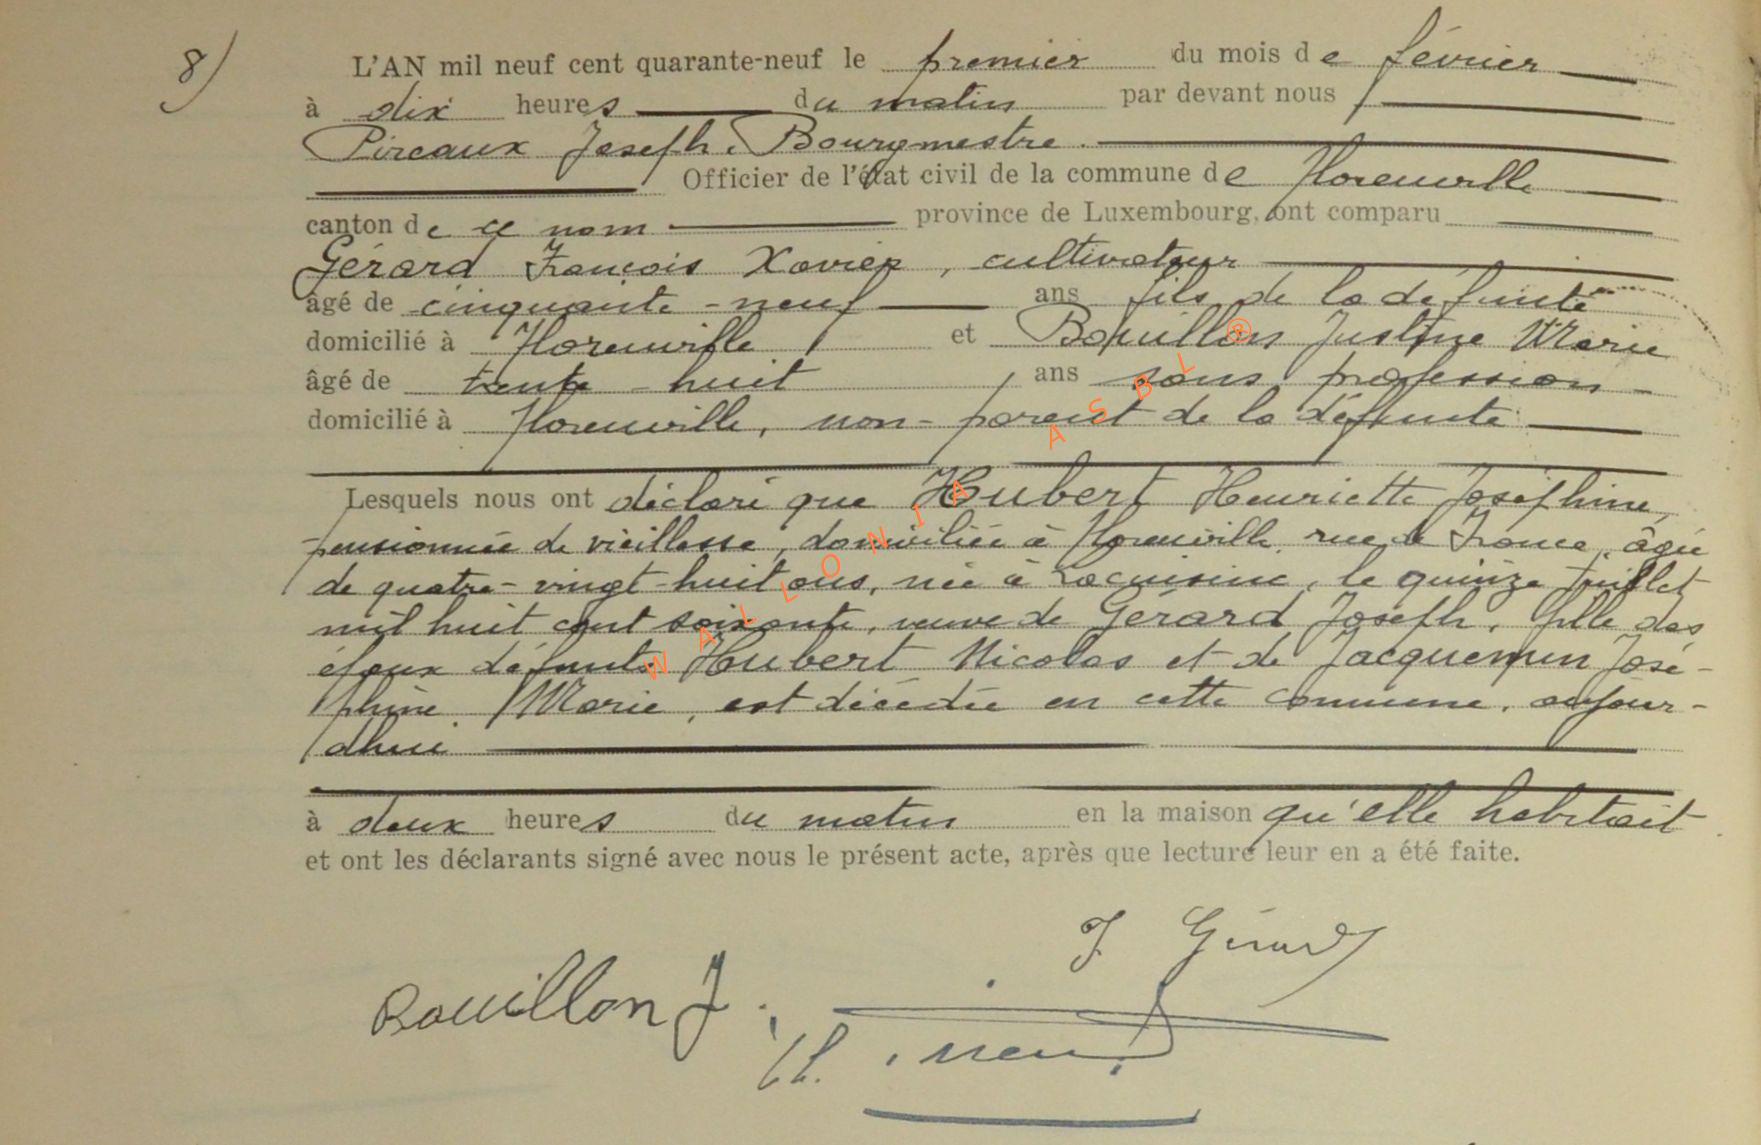 8)
L'AN mil neuf cent quarante-neuf le premier du mois de février
à dix heures du matin par devant nous
Pireaux Joseph, Bourgmestre.
Officier de l'état civil de la commune de Florenville
canton de ce nom province de Luxembourg, ont comparu
Gérard François Xavier, cultivateur
âgé de cinquante-neuf ans fils de la défunte
domicilié à Florenville et Bouillon Justine Marie
âgé de trente-huit ans sans profession
domicilié à Florenville, non-parent de la défunte
Lesquels nous ont déclaré que Hubert Henriette Joséphine,
pensionnée de vieillesse, domiciliée à Florenville, rue de France, âgée
de quatre-vingt-huit ans, née à Lacuisine, le quinze juillet
mil huit cent soixante, veuve de Gérard Joseph, fille des
époux défunts Hubert Nicolas et de Jacquemin José-
phine Marie, est décédée en cette commune, aujour-
dhui
à deux heures du matin en la maison qu'elle habitait
et ont les déclarants signé avec nous le présent acte, après que lecture leur en a été faite.
J Gérard
Bouillon J.
WALLONIA ASBL ®